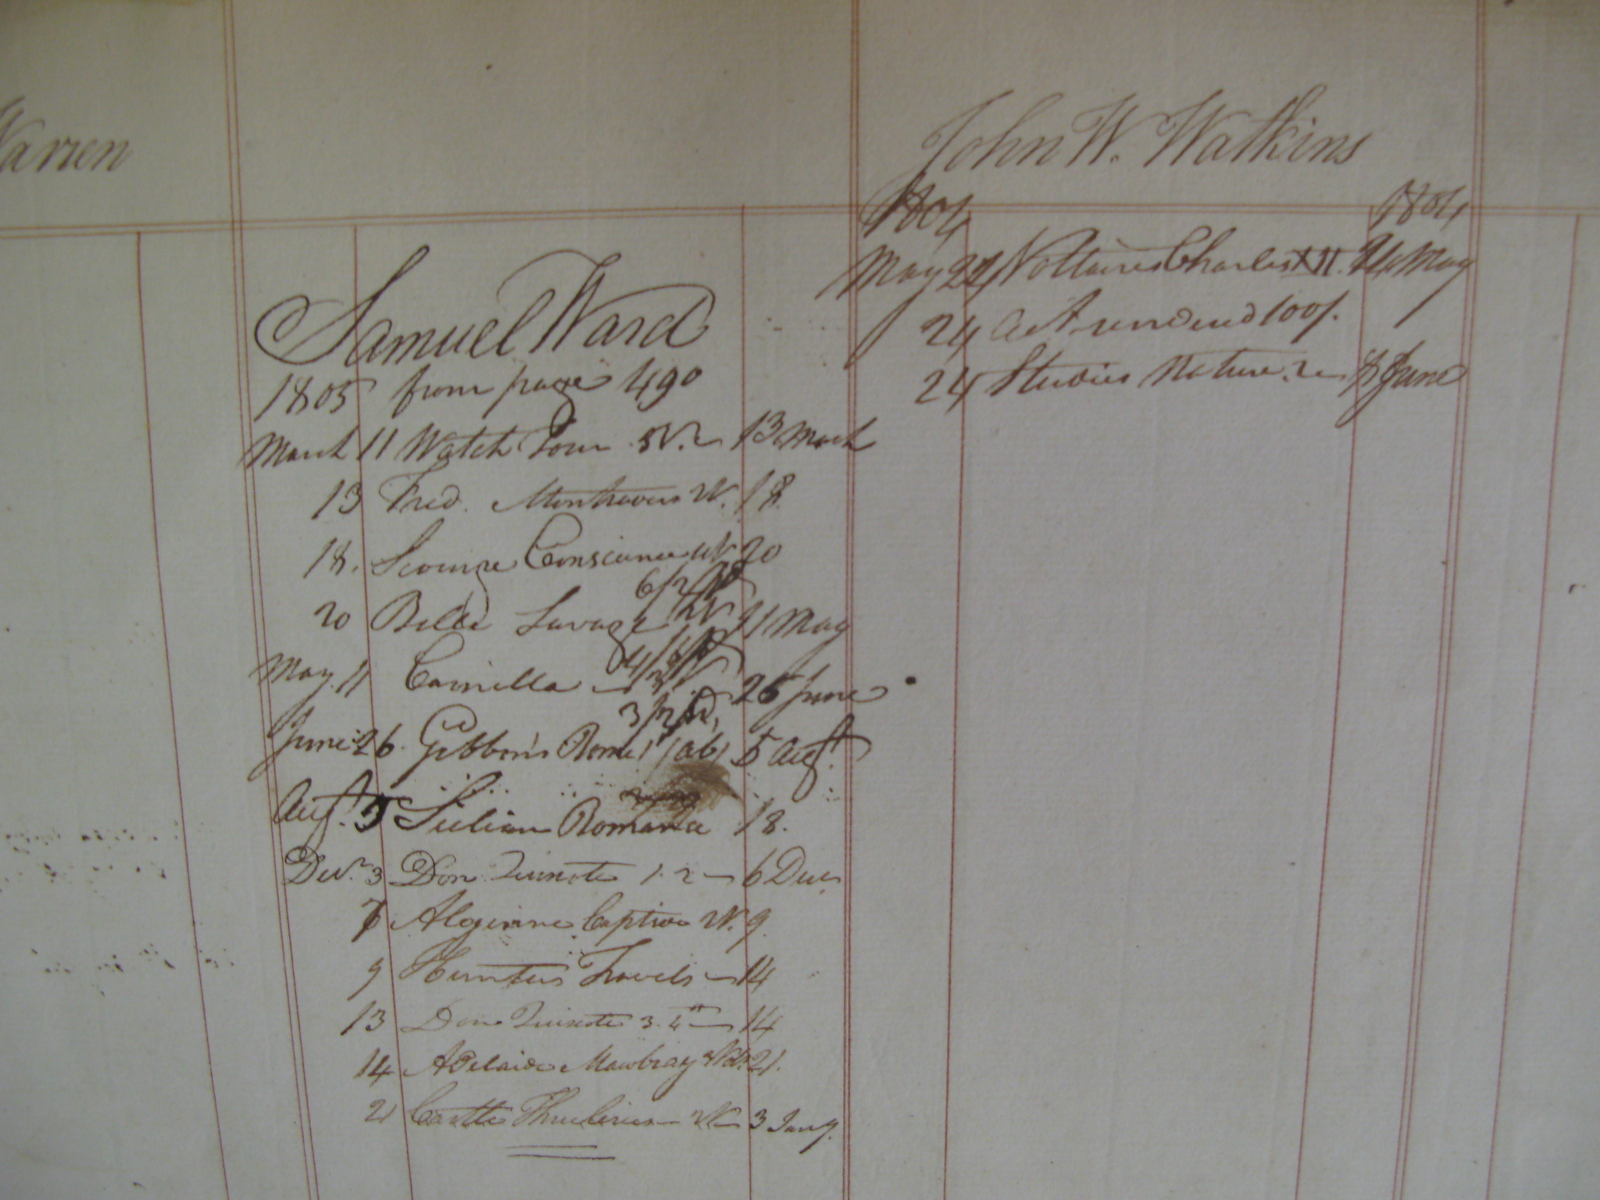 Warren
Samuel Ward
1805 from page 490
March 11 Watch Tour 5V. 13 March
13 Fred. 2V. 18
18. Scourge Conscience 4V. 20
6/2
20 Belle Savage 2V 11 May
4/6
May 11 Camilla 3V 26 June
3/2
June 26. Gibbon's Rome 5 Augt.
Augt. 5 Sicilian Romance 18.
Decr. 3 Don Quixote 1. 2 6 Decr
7 Algerine Captive 2V. 9
9 Hunters Travels 14
13 Don Quixote 3. 4th 14
14 Adelaide Mowbray 3 Vol. 21.
21 Castle 2V 3 Jany.
John W. Watkins
1804 1804
May 22 Voltaires Charles XII. 24 May
24
24 Studies Nature. 2 8 June